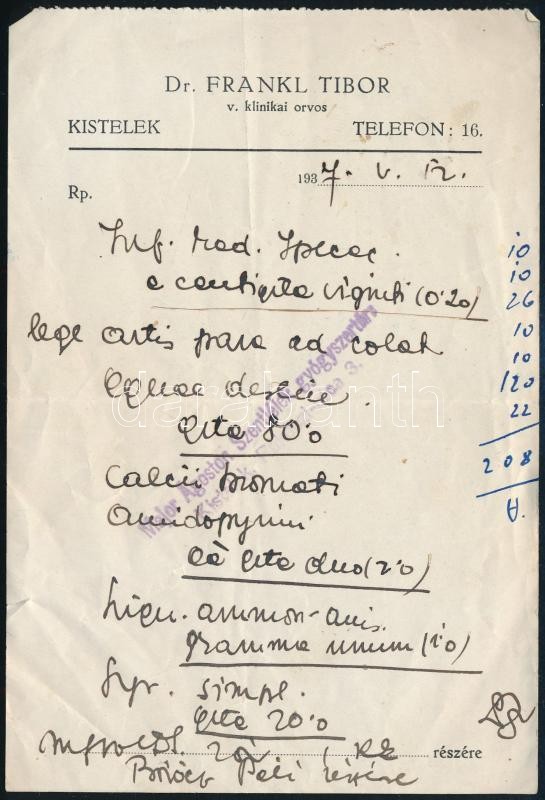 Dr. FRANKL TIBOR
v. klinikai orvos
KISTELEK TELEFON: 16.
1937. V. 12.
Rp.
Inf. rad. Ipecac.
e centigrta viginti (0.20)
lege artis para ad colat
Aquae
grta 80.0
Calcii bromati
Amidopyrini
aa grta duo (2.0)
Liqu. ammon. anis.
gramma unum (1.0)
Syr. simpl.
grta 20.0
részére
Péli részére
10
10
26
10
10
120
22
208
Major Ágoston Szentlélek gyógyszertára
Kistelek
darabanth